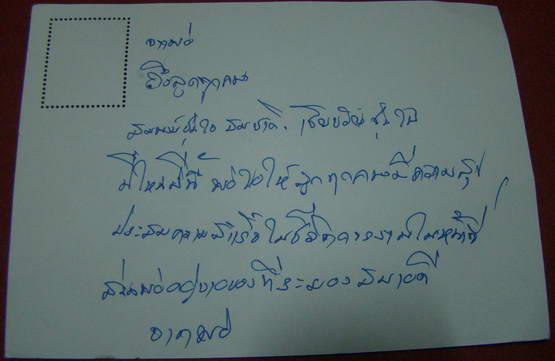 จากพ่อ
ถึงลูกทุกคน
สมพงษ์ สมชาติ
ปีใหม่ปีนี้ พ่อขอให้ลูกทุกคนมีความสุข
ประสบความสำเร็จในชีวิตการงานในหน้าที่
ส่วนพ่ออยู่ทางที่ระยองสบายดี
จากพ่อ